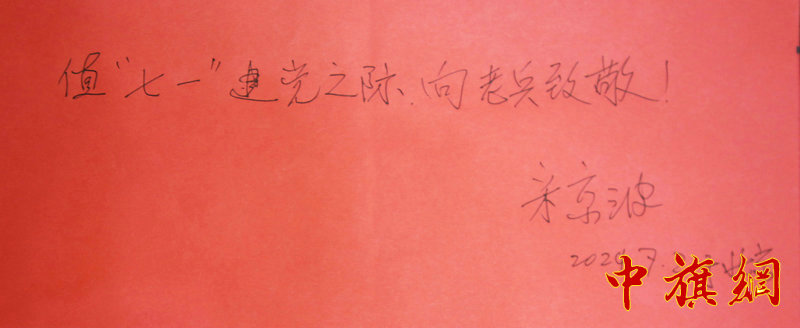 值“七一”建党之际,向老兵致敬!
宋京波
中旗網